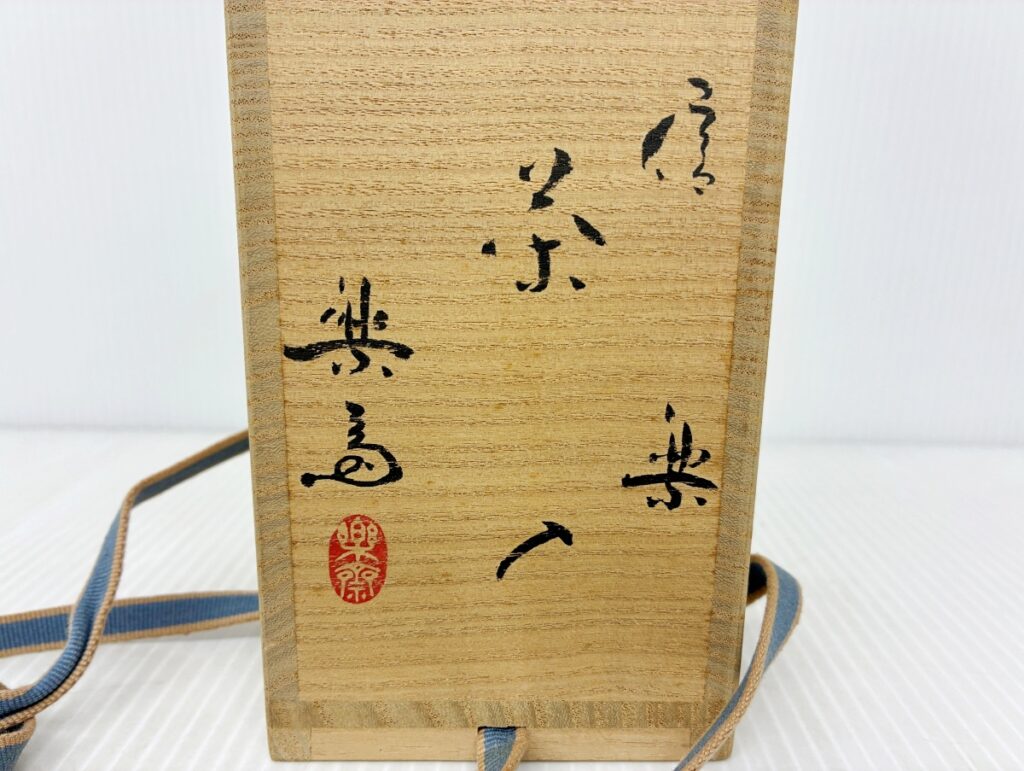 信楽
茶入
楽斎
樂齋